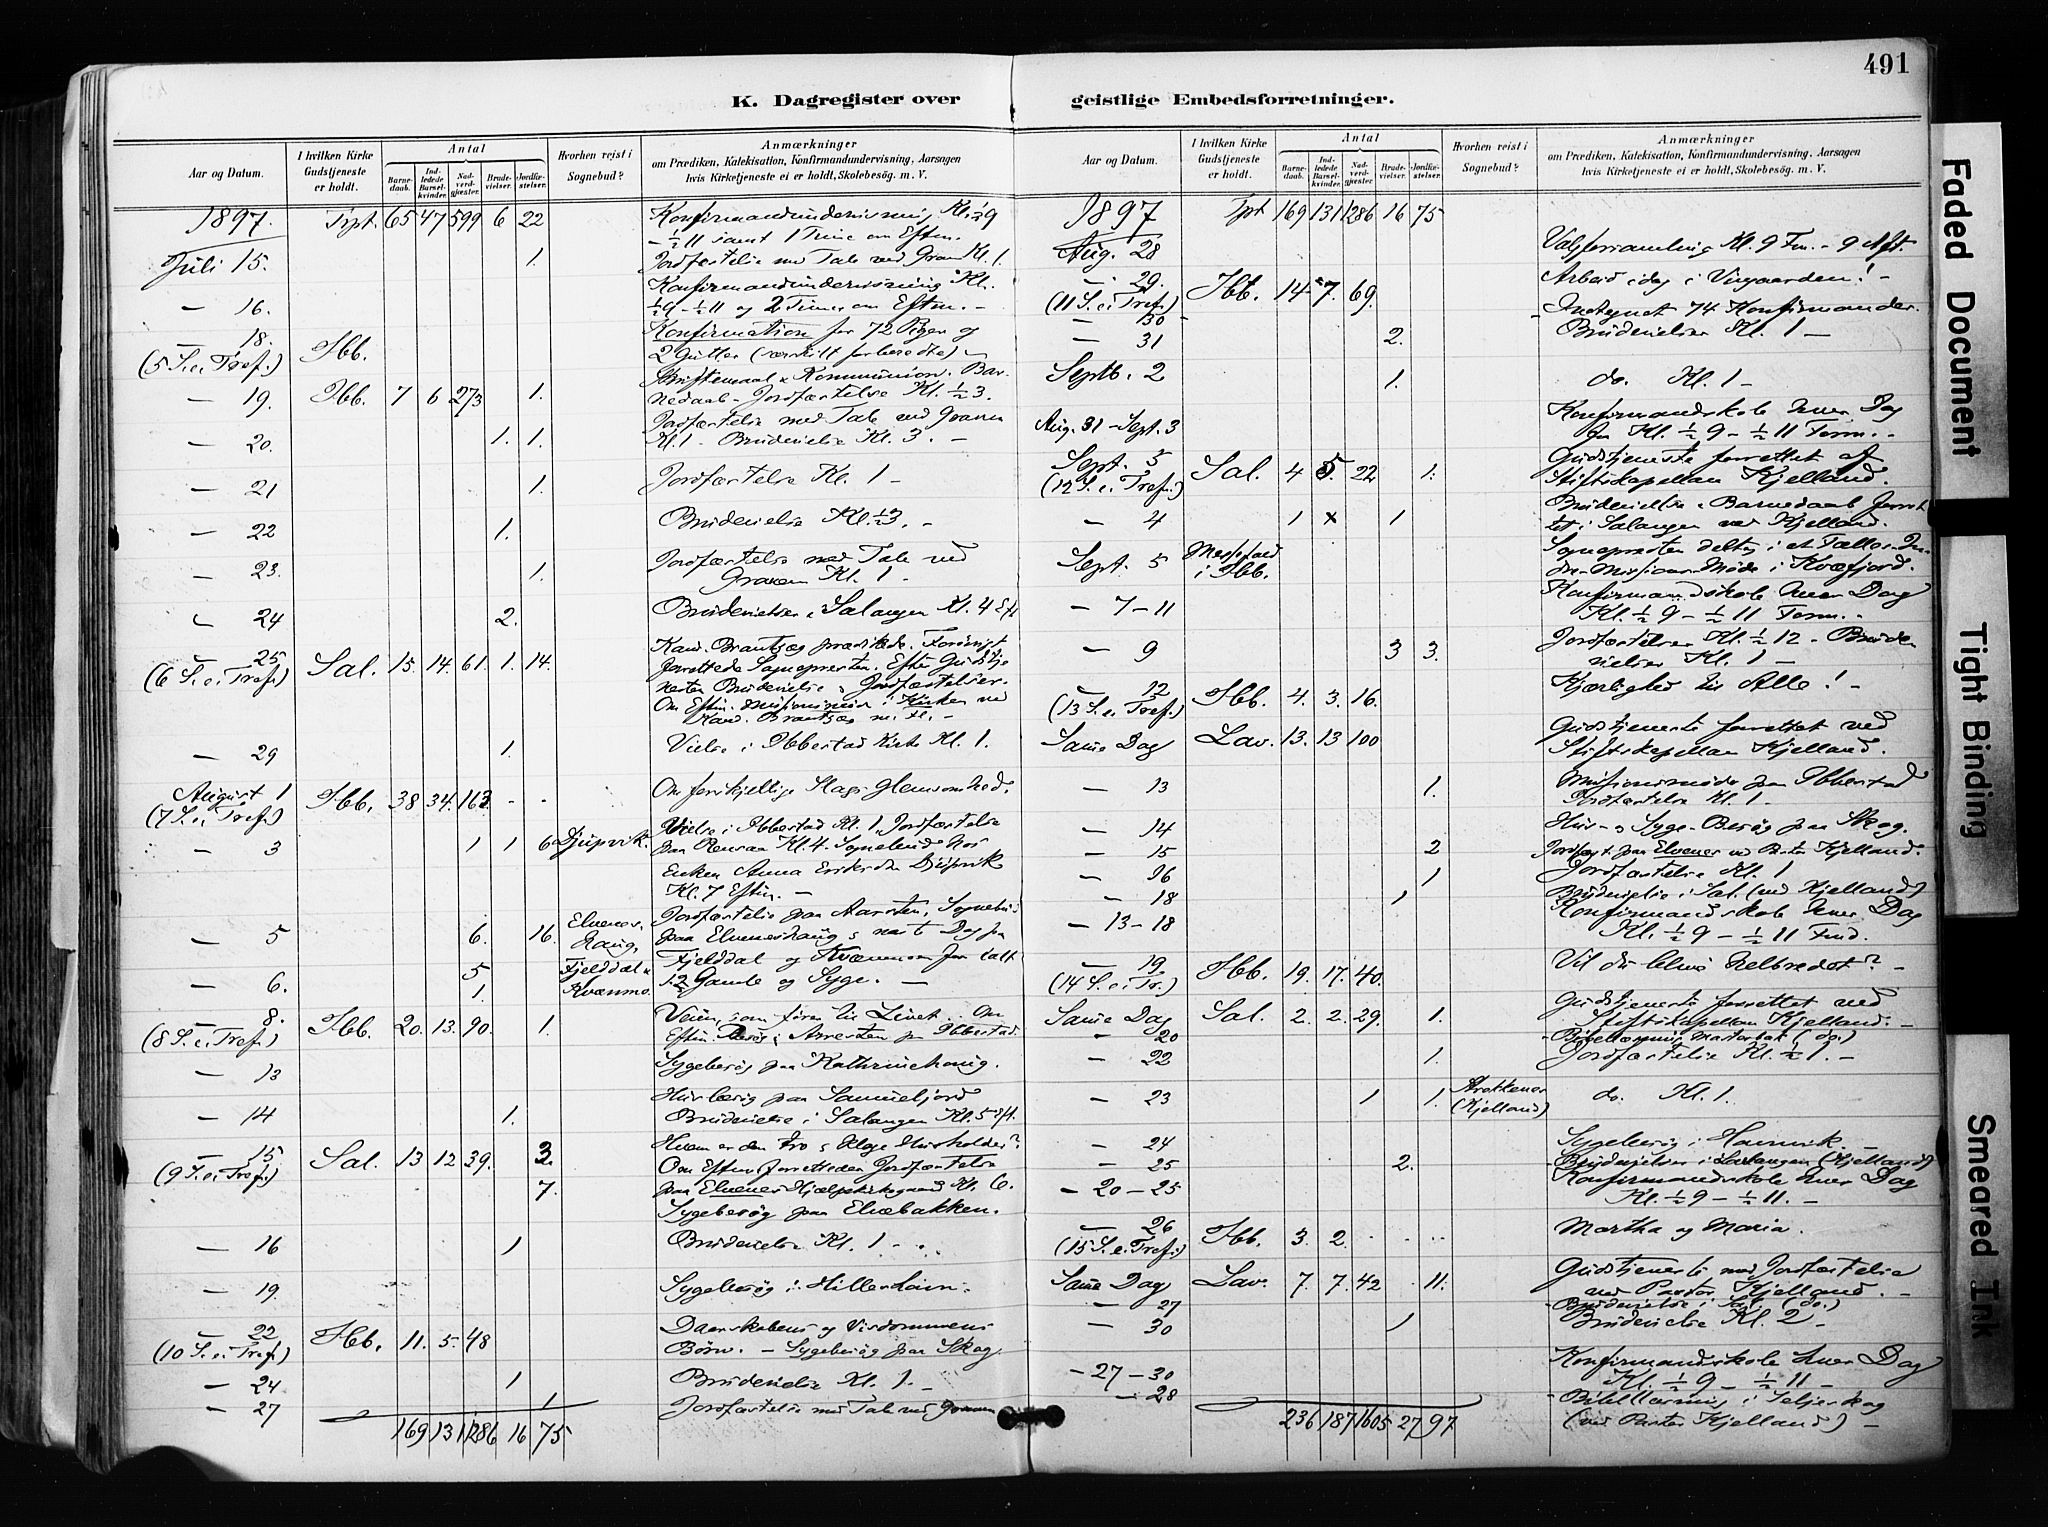 491
K. Dagregister over geistlige Embedsforretninger.
Aar og Datum.
I hvilken Kirke Gudstjeneste er holdt.
Antal
Barnedaab.
Indledede Barselkvinder.
Nadverdgjester.
Brudevielser.
Jordfæstelser.
Hvorhen reist i Sognebud?
Anmærkninger
om Prædiken, Katekisation, Konfirmandundervisning, Aarsagen
hvis Kirketjeneste ei er holdt, Skolebesøg. m. V.
1897. Trpt. 65 47 599 6 22 Konfirmandundervisning Kl. ½9
– ½11 samt 1 Time om Eftm.
Juli 15. 1. Jordfæstelse med Tale ved Graven Kl. 1.
Konfirmandundervisning Kl.
— 16. ½9 – ½11 og 2 Timer om Eftm. –
— 18. Konfirmation for 72 Piger og
(5 S. e. Tref.) Ibb. 2 Gutter (særskilt forberedte) –
— 19. Ibb. 7 6 273 1. Skriftemaal & Kommunion. Bar-
nedaab – Jordfæstelse Kl. ½3.
Jordfæstelse med Tale ved Graven
— 20. 1. 1. Kl. 1 – Brudevielse Kl. 3. –
— 21 1. Jordfæstelse Kl. 1 –
— 22 1. Brudevielse Kl. ½3. –
— 23. 1. Jordfæstelse med Tale ved
Graven Kl. 1 –
— 24 2. Brudevielser i Salangen Kl. 4 Eft
— 25 Kand. Brantzæg prædikede. Forøvrigt
(6 S. e. Tref.) Sal. 15. 14. 61. 1. 14. forrettede Sognepresten. Efter Gudstje
nesten Brudevielse & Jordfæstelser.
Om Eftm. Missionsmøde i Kirken ved
Kand. Brantzæg m. fl. –
— 29 1. Vielse i Ibbestad Kirke Kl. 1.
August 1
(7 S. e. Tref.) Ibb. 38 34. 162. - - Om forskjellige Slags Glemsomhed.
— 3 1 1 6 Djupvik. Vielse i Ibbestad Kl. 1. Jordfæstelse
paa Rensaa Kl. 4. Sognebud hos
Enken Anna Eriksdtr Djupvik
Kl. 7 Eftm. –
— 5 6. 16. Elvenes- haug, Jordfæstelse paa Aarsten, Sognebud
paa Elveneshaug & næste Dag paa
— 6. 5 1. Fjelddal & Kvænmo. Fjelddal og Kvænmo for ialt
12 Gamle og Syge. —
— 8.
(8 S. e. Tref.) Ibb. 20. 13. 90. 1. Veien, som fører til Livet. Om
Eftm. Besøg i Arresten paa Ibbestad.
— 13 Sygebesøg paa Kathrinehaug.
— 14 1. Husbesøg paa Gamuelfjord
Brudevielse i Salangen Kl. 5 Eft.
— 15
(9 S. e. Tref.) Sal. 13 12 39. 3. Hvem er den tro & kloge Husholder?
Om Eftm. forrettedes Jordfæstelse
7. paa Elvenes Hjælpekirkegaard Kl. 6.
Sygebesøg paa Elvebakken.
— 16 1 Brudevielse Kl. 1 –
— 19. Sygebesøg i Hillershavn.
— 22
(10 S. e. Tref.) Ibb. 11. 5. 48 Daarskabens og Visdommens
Børn. – Sygebesøg paa Skog.
— 24 1 Brudevielse Kl. 1. –
— 27 1 Jordfæstelse med Tale ved Graven
169 131 1286 16 75
Aar og Datum.
I hvilken Kirke Gudstjeneste er holdt.
Antal
Barnedaab.
Indledede Barselkvinder.
Nadverdgjester.
Brudevielser.
Jordfæstelser.
Hvorhen reist i Sognebud?
Anmærkninger
om Prædiken, Katekisation, Konfirmandundervisning, Aarsagen
hvis Kirketjeneste ei er holdt, Skolebesøg. m. V.
1897 Tpt 169 131 1286 16 75
Aug. 28 Valgforsamling Kl. 9 Fm. – 9 Aft.
— 29.
(11 S. e. Tref.) Ibb. 14 7. 69. Arbeid idag i Vingaarden! –
— 30 Indtegnet 74 Konfirmander.
— 31 2. Brudevielser Kl. 1 –
Septb. 2 1. do. Kl. 1 –
Aug. 31 – Sept. 3 Konfirmandskole hver Dag
fra Kl. ½9 – ½11 Form. –
Sept. 5
(12 S. e. Tref.) Sal. 4 5. 22 1. Gudstjeneste forrettet af
Stiftskapellan Kjelland.
— 4 1 x 1 Brudevielse & Barnedaab forret
tet i Salangen ved Kjelland.
Sept. 5 Messefald i Ibb. Sognepresten deltog i et Fælles-In-
dre-Missions-Møde i Kvæfjord.
— 7 – 11 Konfirmandskole hver Dag
Kl. ½9 – ½11 Form.
— 9 3 3. Jordfæstelser Kl. ½12 – Brude
vielser Kl. 1 –
— 12
(13 S. e. Tref.) Ibb. 4. 3. 16. Kjærlighed til Alle! –
Samme Dag Lav. 13. 13 100 Gudstjeneste forrettet ved
Stiftskapellan Kjelland.
— 13 1. Missionsmøde paa Ibbestad
Jordfæstelse Kl. 1.
— 14 Hus- & Syge-Besøg paa Skog.
— 15 2 Jordfæst. paa Elvenes ved Pastor Kjelland.
— 16 1 Jordfæstelse Kl. 1
— 18 1 Brudevielse i Sal. (ved Kjelland)
— 13 – 18 Konfirmandskole hver Dag
Kl. ½9 – ½11 Fmd.
— 19
(14 S. e. Tr.) Ibb. 19. 17. 40. Vil du blive helbredet? –
Samme Dag Sal. 2. 2. 29. 1. Gudstjeneste forrettet ved
Stiftskapellan Kjelland. –
— 20 Bibellæsning (do.)
— 22 1. Jordfæstelse Kl. ½1. –
— 23 1 1. (Kjelland) do. Kl. 1.
— 24 Sygebesøg i Havnvik. –
— 25 2. Brudevielser i Salangen (Kjelland)
— 20 – 25 Konfirmandskole hver Dag
Kl. ½9 – ½11. –
— 26
(15 S. e. Tref.) Ibb. 3. 2. Martha og Maria.
Samme Dag Lav. 7. 7. 42 11. Gudstjeneste med Jordfæstelse
ved Pastor Kjelland. –
— 27 Brudevielse i Sal. (do.)
— 30 1 Brudevielse Kl. 2 –
— 27 – 30 Konfirmandskole hver Dag
Kl. ½9 – ½11 –
— 28 Bibellæsning i Seljeskog
(ved Pastor Kjelland) –
236 187 1605 27 97
Faded Document
Tight Binding
Smeared Ink